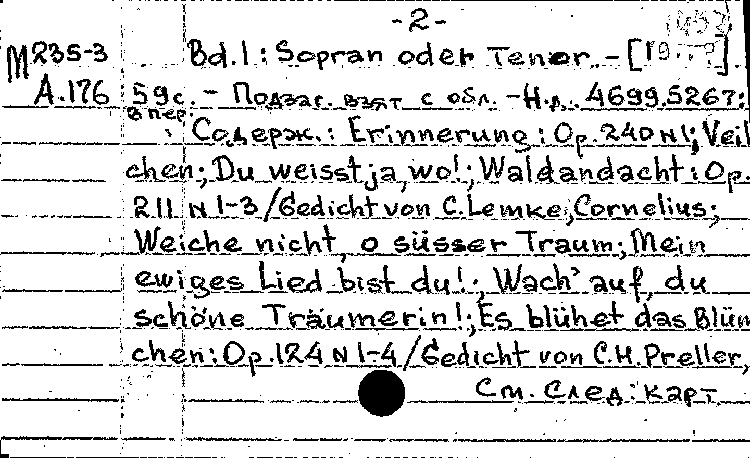 -2-
М235-3 Bd.1: Sopran oder Tenor. - [19
А.176 59с. - Подзаг. взят с обл. - Н.д. 4699,5267:
в пер.
Содерж.: Erinnerung: Op. 240 N1; Veil
chen; Du weisst ja, wo!; Waldandacht: Op.
211 N 1-3/Gedicht von C. Lemke, Cornelius;
Weiche nicht, o süsser Traum; Mein
ewiges Lied bist du!; Wach' auf, du
schöne Träumerin!; Es blühet das Blüm
chen: Op. 124 N 1-4/Gedicht von C.H. Preller,
См. след. карт.